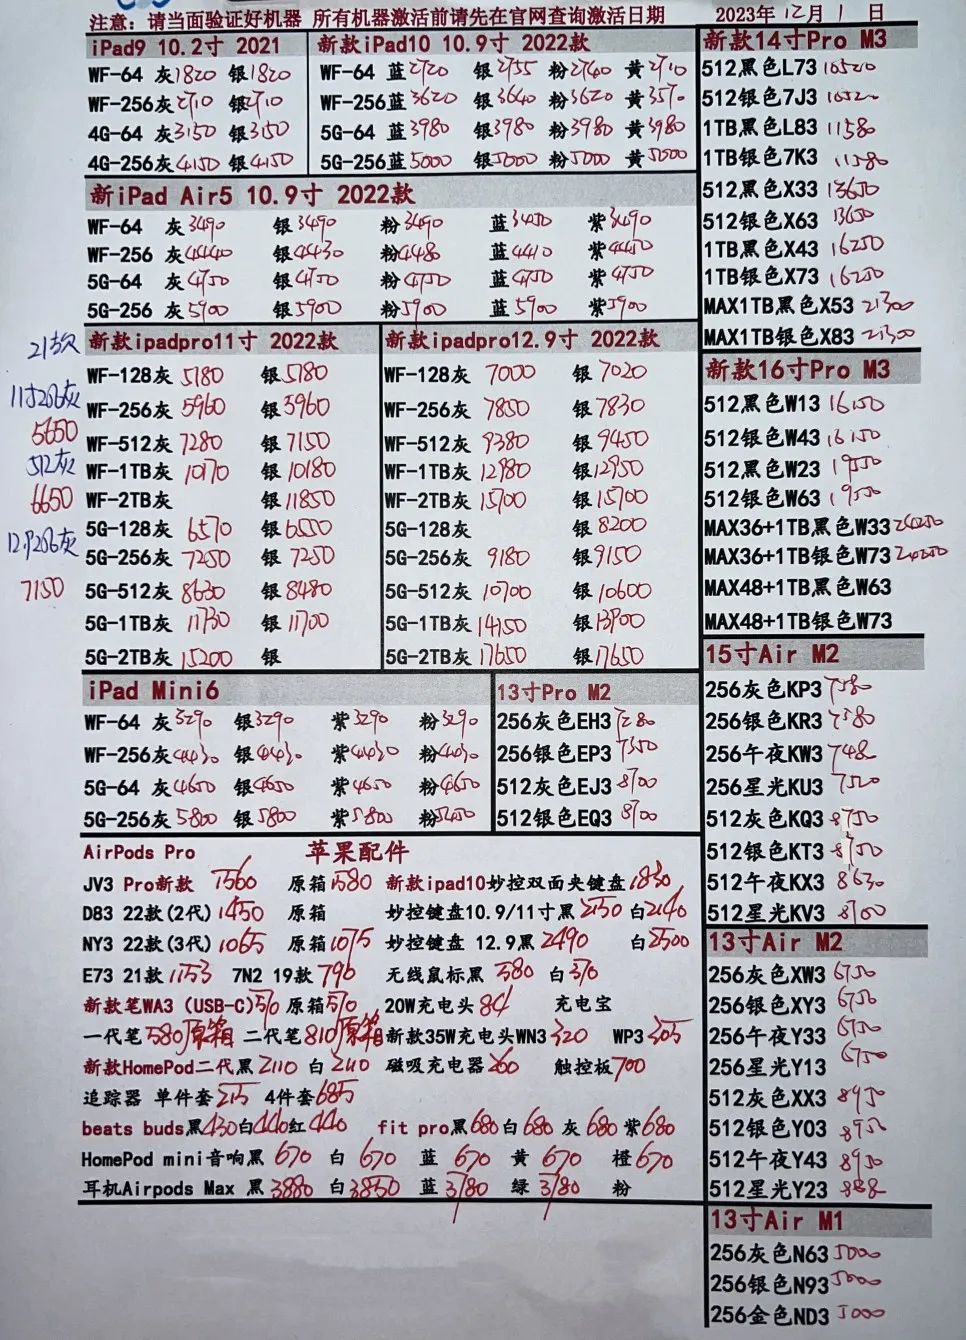 注意：请当面验证好机器 所有机器激活前请先在官网查询激活日期 2023年12月1日
iPad9 10.2寸 2021
WF-64 灰1820 银1820
WF-256灰2710 银2710
4G-64 灰3150 银3150
4G-256灰4150 银4150
新款iPad10 10.9寸 2022款
WF-64 蓝2720 银2755 粉2740 黄2710
WF-256蓝3620 银3640 粉3620 黄3570
5G-64 蓝3980 银3980 粉3980 黄3980
5G-256蓝5000 银5000 粉5000 黄5000
新iPad Air5 10.9寸 2022款
WF-64 灰3490 银3490 粉3490 蓝3450 紫3490
WF-256 灰4440 银4430 粉4480 蓝4410 紫4450
5G-64 灰4750 银4750 粉4750 蓝4750 紫4750
5G-256 灰5900 银5900 粉5900 蓝5900 紫5900
21款
11寸256灰
5650
512灰
6650
12.9256灰
7150
新款ipadpro11寸 2022款
WF-128灰 5180 银5180
WF-256灰 5960 银5960
WF-512灰 7280 银7150
WF-1TB灰 10170 银10180
WF-2TB灰 银11850
5G-128灰 6570 银6550
5G-256灰 7250 银7250
5G-512灰 8630 银8480
5G-1TB灰 11730 银11700
5G-2TB灰 15200 银
新款ipadpro12.9寸 2022款
WF-128灰 7000 银7020
WF-256灰 7850 银7830
WF-512灰 9380 银9450
WF-1TB灰 12980 银12950
WF-2TB灰 15700 银15700
5G-128灰 银8200
5G-256灰 9180 银9150
5G-512灰 10700 银10600
5G-1TB灰 14150 银13900
5G-2TB灰 17650 银17650
iPad Mini6
WF-64 灰3290 银3290 紫3290 粉3290
WF-256灰4430 银4430 紫4430 粉4430
5G-64 灰4650 银4650 紫4650 粉4650
5G-256灰5800 银5800 紫5800 粉
13寸Pro M2
256灰色EH3 7280
256银色EP3 7350
512灰色EJ3 8700
512银色EQ3 8700
AirPods Pro 苹果配件
JV3 Pro新款 1560 原箱1580 新款ipad10妙控双面夹键盘1830
D83 22款(2代) 1450 原箱 妙控键盘10.9/11寸黑2150 白2140
NY3 22款(3代) 1065 原箱1075 妙控键盘 12.9黑2490 白2500
E73 21款1153 7N2 19款790 无线鼠标黑 580 白370
新款笔WA3 (USB-C)510 原箱510 20W充电头84 充电宝
一代笔580原箱 二代笔810原箱 新款35W充电头WN3 320 WP3 305
新款HomePod二代黑2110 白2110 磁吸充电器260 触控板700
追踪器 单件套215 4件套685
beats buds黑430白440红440 fit pro黑680白680 灰680紫680
HomePod mini音响黑 670 白 670 蓝 670 黄 670 橙670
耳机Airpods Max 黑3880 白3850 蓝3780 绿3780 粉
新款14寸Pro M3
512黑色L73 10520
512银色7J3 10520
1TB黑色L83 11580
1TB银色7K3 11580
512黑色X33 13650
512银色X63 13650
1TB黑色X43 16250
1TB银色X73 16250
MAX1TB黑色X53 21300
MAX1TB银色X83 21300
新款16寸Pro M3
512黑色W13 16150
512银色W43 16150
512黑色W23 19550
512银色W63 19550
MAX36+1TB黑色W33 24250
MAX36+1TB银色W73 24250
MAX48+1TB黑色W63
MAX48+1TB银色W73
15寸Air M2
256灰色KP3 7580
256银色KR3 7580
256午夜KW3
256星光KU3 7520
512灰色KQ3 8750
512银色KT3 8750
512午夜KX3 8630
512星光KV3 8700
13寸Air M2
256灰色XW3 6750
256银色XY3 6750
256午夜Y33 6750
256星光Y13 6750
512灰色XX3 8950
512银色Y03 8950
512午夜Y43 8930
512星光Y23
13寸Air M1
256灰色N63 5000
256银色N93 5000
256金色ND3 5000